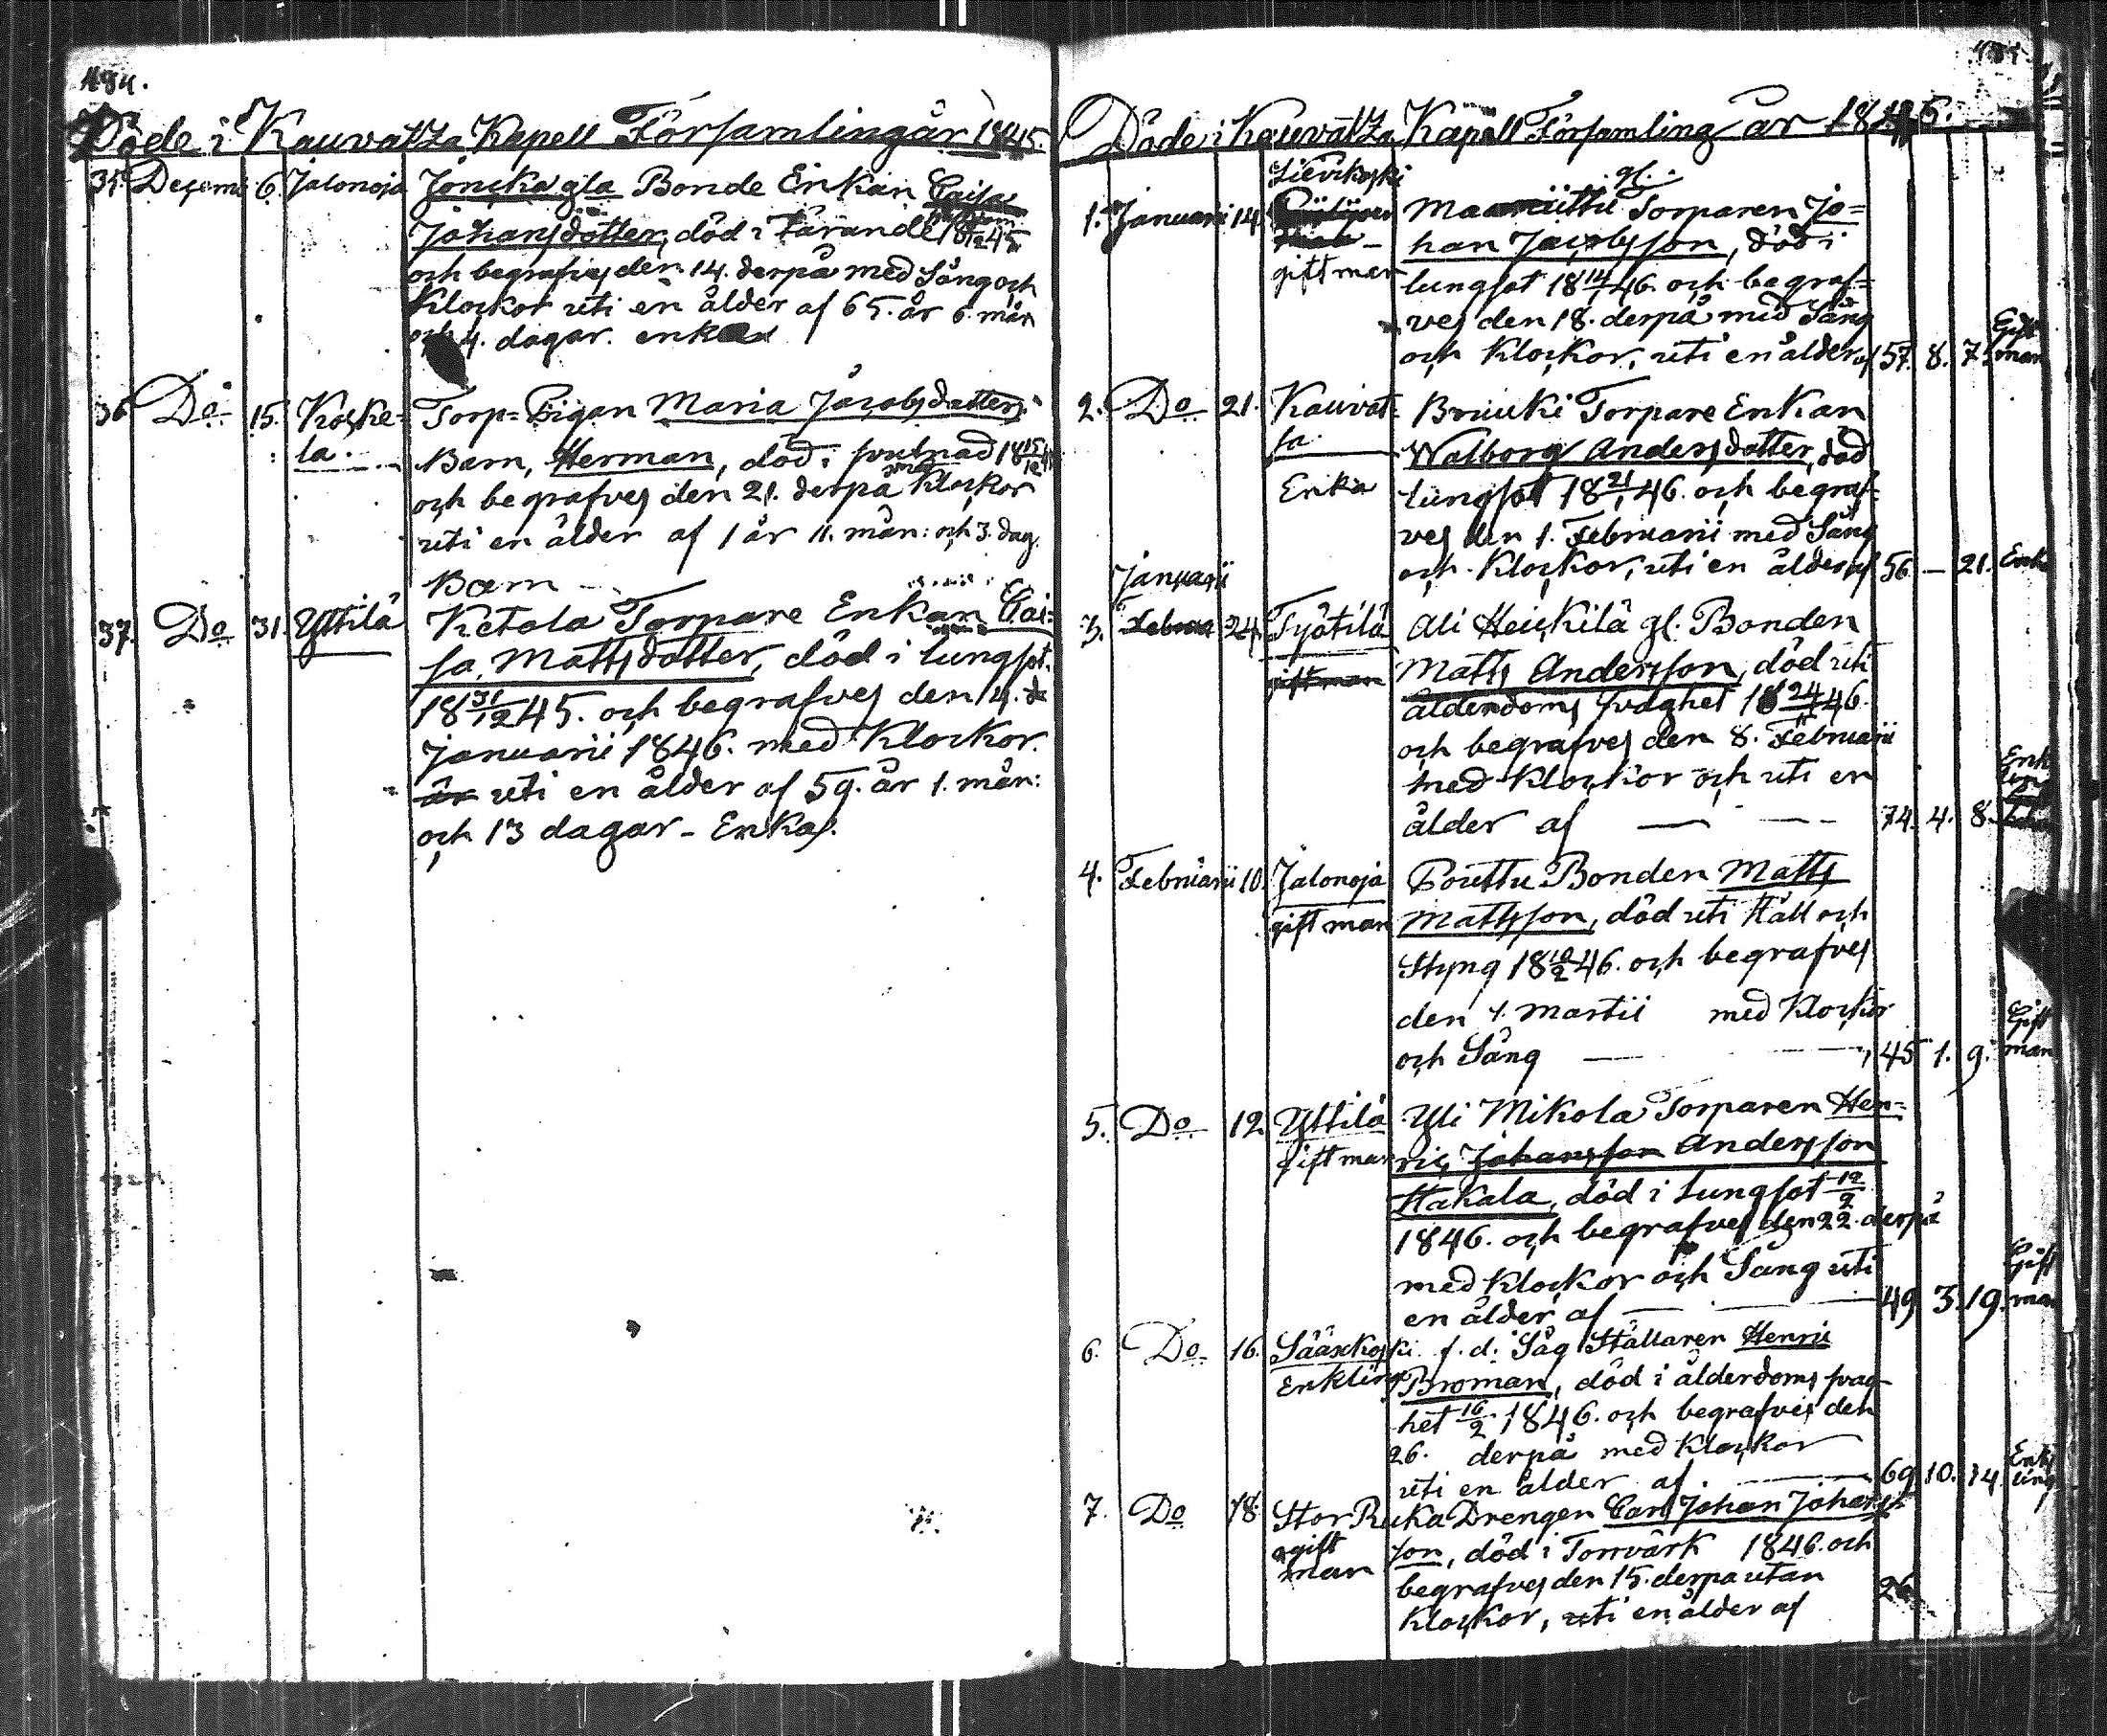 494.
Döde i Kauvatza Kapell Församling år 1845.
35. Decemb 6. Jalonoja Joncka gla Bonde Enkan Caisa
Johansdotter, död i 18 6/12 45
och begrafves den 14. derpå med Sång och
Klockor uti en ålder af 65. år 6. mån
och 4. dagar. enka
36 Do 15. Koske- Torp-Pigan Maria Jacobsdotters
la. Barn, Herman, död i 18 15/12
och begrafves den 21. derpå med Klockor
uti en ålder af 1 år 11. mån: och 3. dag.
Barn
37. Do 31. Yttilä Ketola Torpare Enkan Cai-
sa Mattsdotter, död i lungsot.
18 31/12 45. och begrafves den 4. de
Januarii 1846. med Klockor.
år uti en ålder af 59. år 1. mån:
och 13 dagar - Enka.
Döde i Kauvatza Kapell Församling år 1846.
Lievikoski gl.
1. Januari 14. Torparen Jo-
han Jacobsson, död i
gift man lungsot 18 14/1 46. och begraf-
ves den 18. derpå med Sång
och Klockor, uti en ålder af 57. 8. 7. Gift man
2. Do 21. Kauvat- Bruuki Torpare Enkan
sa. Walborg Andersdotter, död
Enka lungsot 18 21/1 46. och begraf-
ves den 1. Februarii med Sång
och Klockor, uti en ålder af 56. — 21. Enka
Januarii
3. Februa 24. Työtilä Ali Heickilä gl. Bonden
gift man Matts Andersson, död uti
ålderdoms svaghet 18 24/1 46.
och begrafves den 8. Februarii
med Klockor och uti en
ålder af — — 74. 4. 8. Enk
4. Februarii 10. Jalonoja Pouttu Bonden Matts
gift man Mattsson, död uti Håll och
Styng 18 10/2 46. och begrafves
den 1. Martii med Klockor
och Sång — — 45 1. 9. Gift man
5. Do 12. Yttilä Yli Mikola Torparen Hen-
gift man ric Johansson Andersson
Hakala, död i Lungsot 12/2
1846. och begrafves den 22. derpå
med Klockor och Sång uti
en ålder af — — — 49 3. 19. Gift man
6. Do 16. Sääxkoski f. d. Såg Ställaren Henric
Enkling Broman, död i ålderdoms svag-
het 16/2 1846. och begrafves den
26. derpå med Klockor
uti en ålder af. — 69 10. 14. Enkling
7. Do 18. Stor Ruka Drengen Carl Johan Johans-
gift son, död i Torrvärk 1846. och
man begrafves den 15. derpå utan
Klockor, uti en ålder af 26